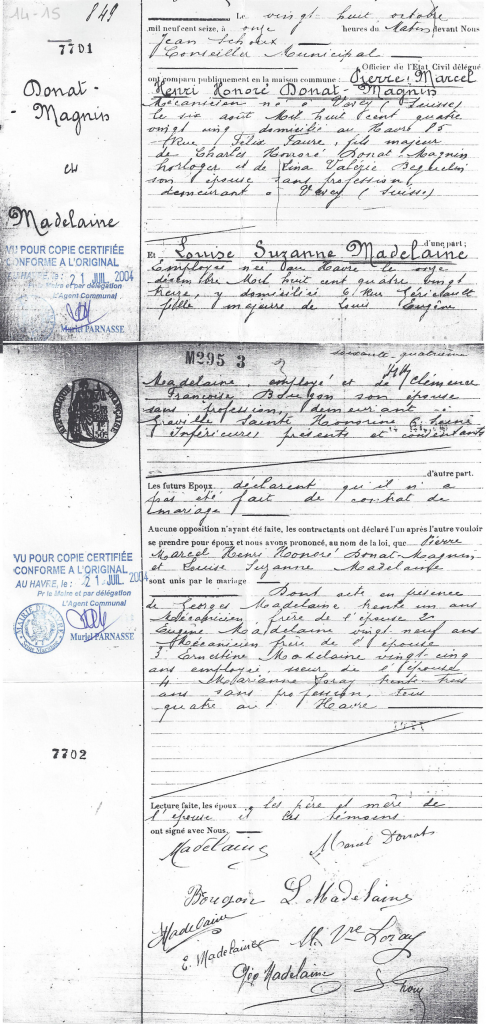 14-15
849
7701
Donat-
Magnin
et
Madelaine
VU POUR COPIE CERTIFIÉE
CONFORME A L'ORIGINAL
AU HAVRE, le : 21 JUIL 2004
Pr le Maire et par délégation
L'Agent Communal
Muriel PARNASSE
Le vingt huit octobre
mil neuf cent seize, à onze heures du Matin devant Nous
Jean
Conseiller Municipal
Officier de l'État Civil délégué
ont comparu publiquement en la maison commune : Pierre, Marcel
Henri Honoré Donat-Magnin
Mécanicien né à Vevey (Suisse)
le six août Mil huit cent quatre
vingt cinq domicilié au Havre 85
Rue Félix Faure, fils majeur
de Charles Honoré Donat-Magnin
horloger et de Lina Valérie
son épouse sans profession,
demeurant à Vevey (Suisse)
d'une part ;
Et Louise Suzanne Madelaine
Employée née au Havre le onze
décembre Mil huit cent quatre vingt
treize, y domiciliée 6 Rue Géricault
fille majeure de Louis Eugène
M295 3
soixante-quatrième
Madelaine, employé et de Clémence
Françoise son épouse
sans profession, demeurant à
Graville Sainte Honorine (Seine
Inférieure) présents et consentants
d'autre part.
Les futurs Epoux déclarent qu'il n'a
pas été fait de contrat de
mariage
Aucune opposition n'ayant été faite, les contractants ont déclaré l'un après l'autre vouloir
se prendre pour époux et nous avons prononcé, au nom de la loi, que Pierre
Marcel Henri Honoré Donat-Magnin
et Louise Suzanne Madelaine
sont unis par le mariage
Dont acte en présence
de Georges Madelaine trente un ans
Mécanicien frère de l'épouse 2
Eugène Madelaine vingt neuf ans
Mécanicien frère de l'épouse
3 Ernestine Madelaine vingt-cinq
ans employée soeur de l'épouse
4 Marianne Loray trente trois
ans sans profession, tous
quatre au Havre
VU POUR COPIE CERTIFIÉE
CONFORME A L'ORIGINAL
AU HAVRE, le : 21 JUIL 2004
Pr le Maire et par délégation
L'Agent Communal
Muriel PARNASSE
7702
Lecture faite, les époux, les père et mère de
l'épouse et les témoins
ont signé avec Nous,
Madelaine Marcel Donat
L. Madelaine
Madelaine
E. Madelaine M. Vve Loray
Géo Madelaine